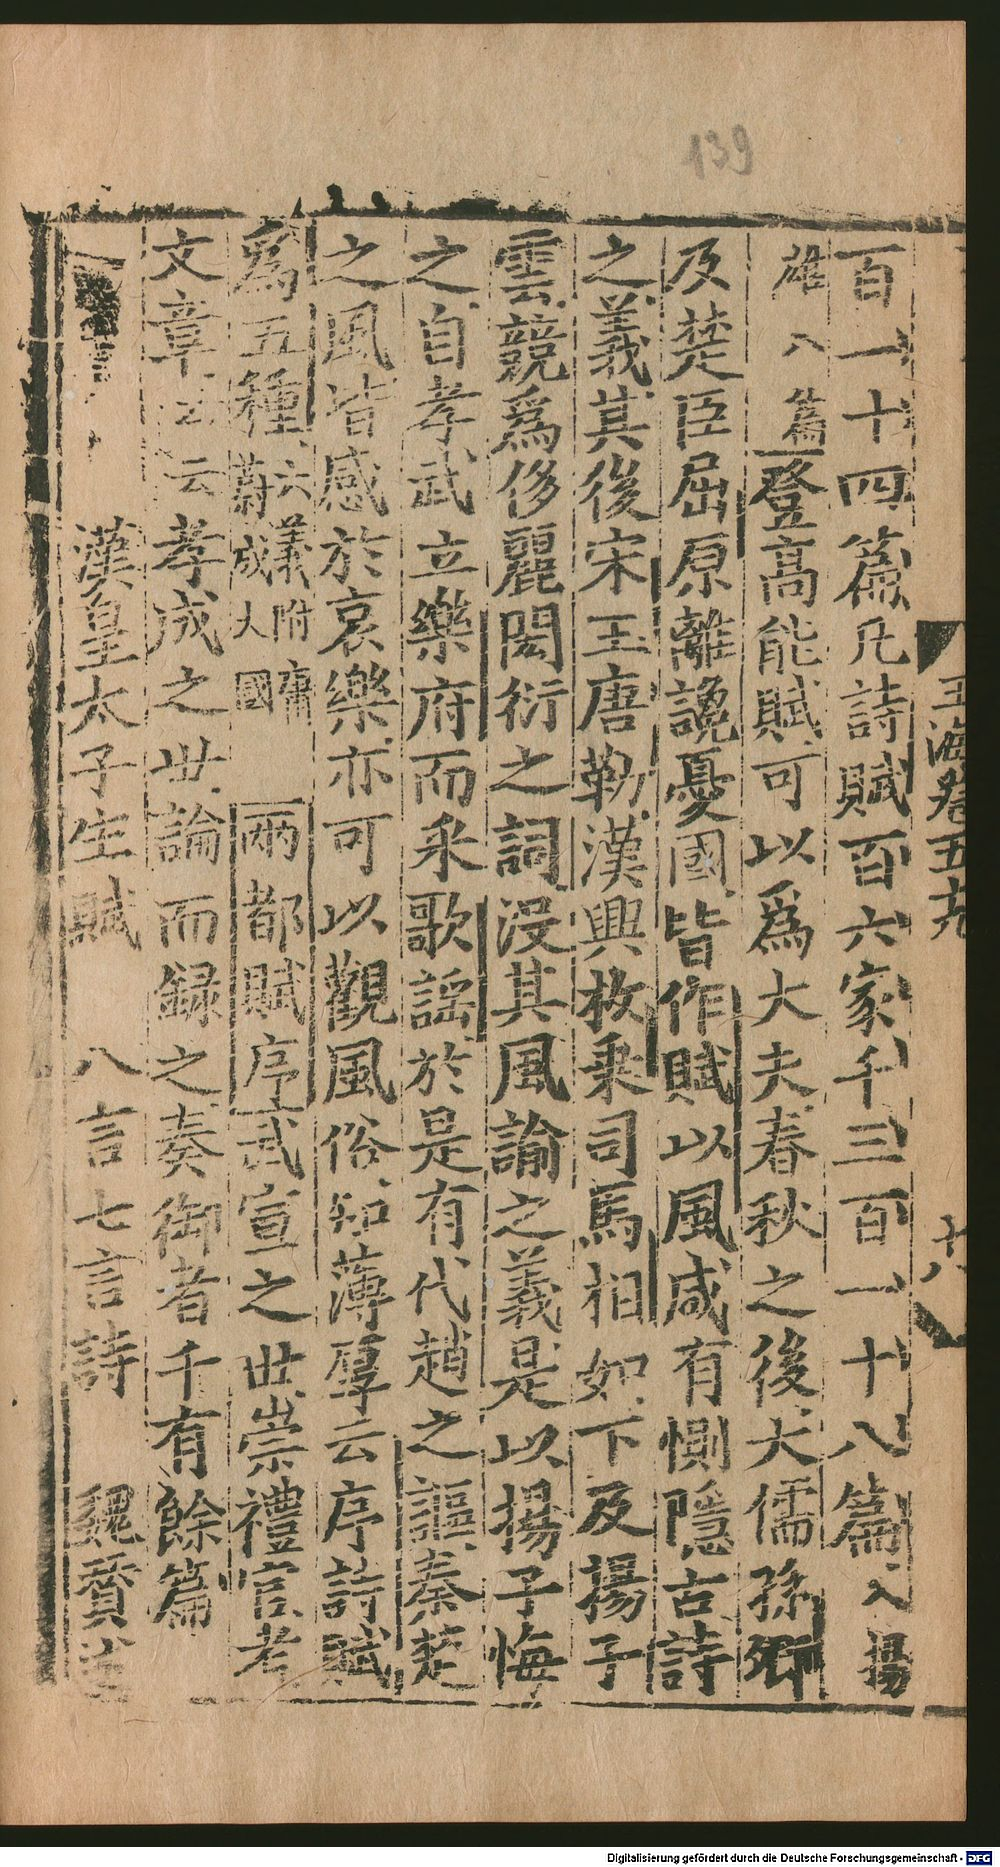 139
玉海卷五十九
十八
百一十四篇凡詩賦百六家千三百一十八篇入揚
雄八篇登高能賦可以爲大夫春秋之後大儒孫卿
及楚臣屈原離讒憂國皆作賦以風咸有惻隱古詩
之義其後宋玉唐勒漢興枚乗司馬相如下及揚子
雲競爲侈麗閎衍之詞没其風諭之義是以揚子悔
之自孝武立樂府而釆歌謡於是有代趙之謳秦楚
之風皆感於哀樂亦可以觀風俗知薄厚云序詩賦
爲五種六義附庸蔚成大國兩都賦序武宣之世崇禮官考
文章云云孝成之世論而録之奏御者千有餘篇
漢皇太子生賦 八言七言詩 魏賛
Digitalisierung gefördert durch die Deutsche Forschungsgemeinschaft - DFG